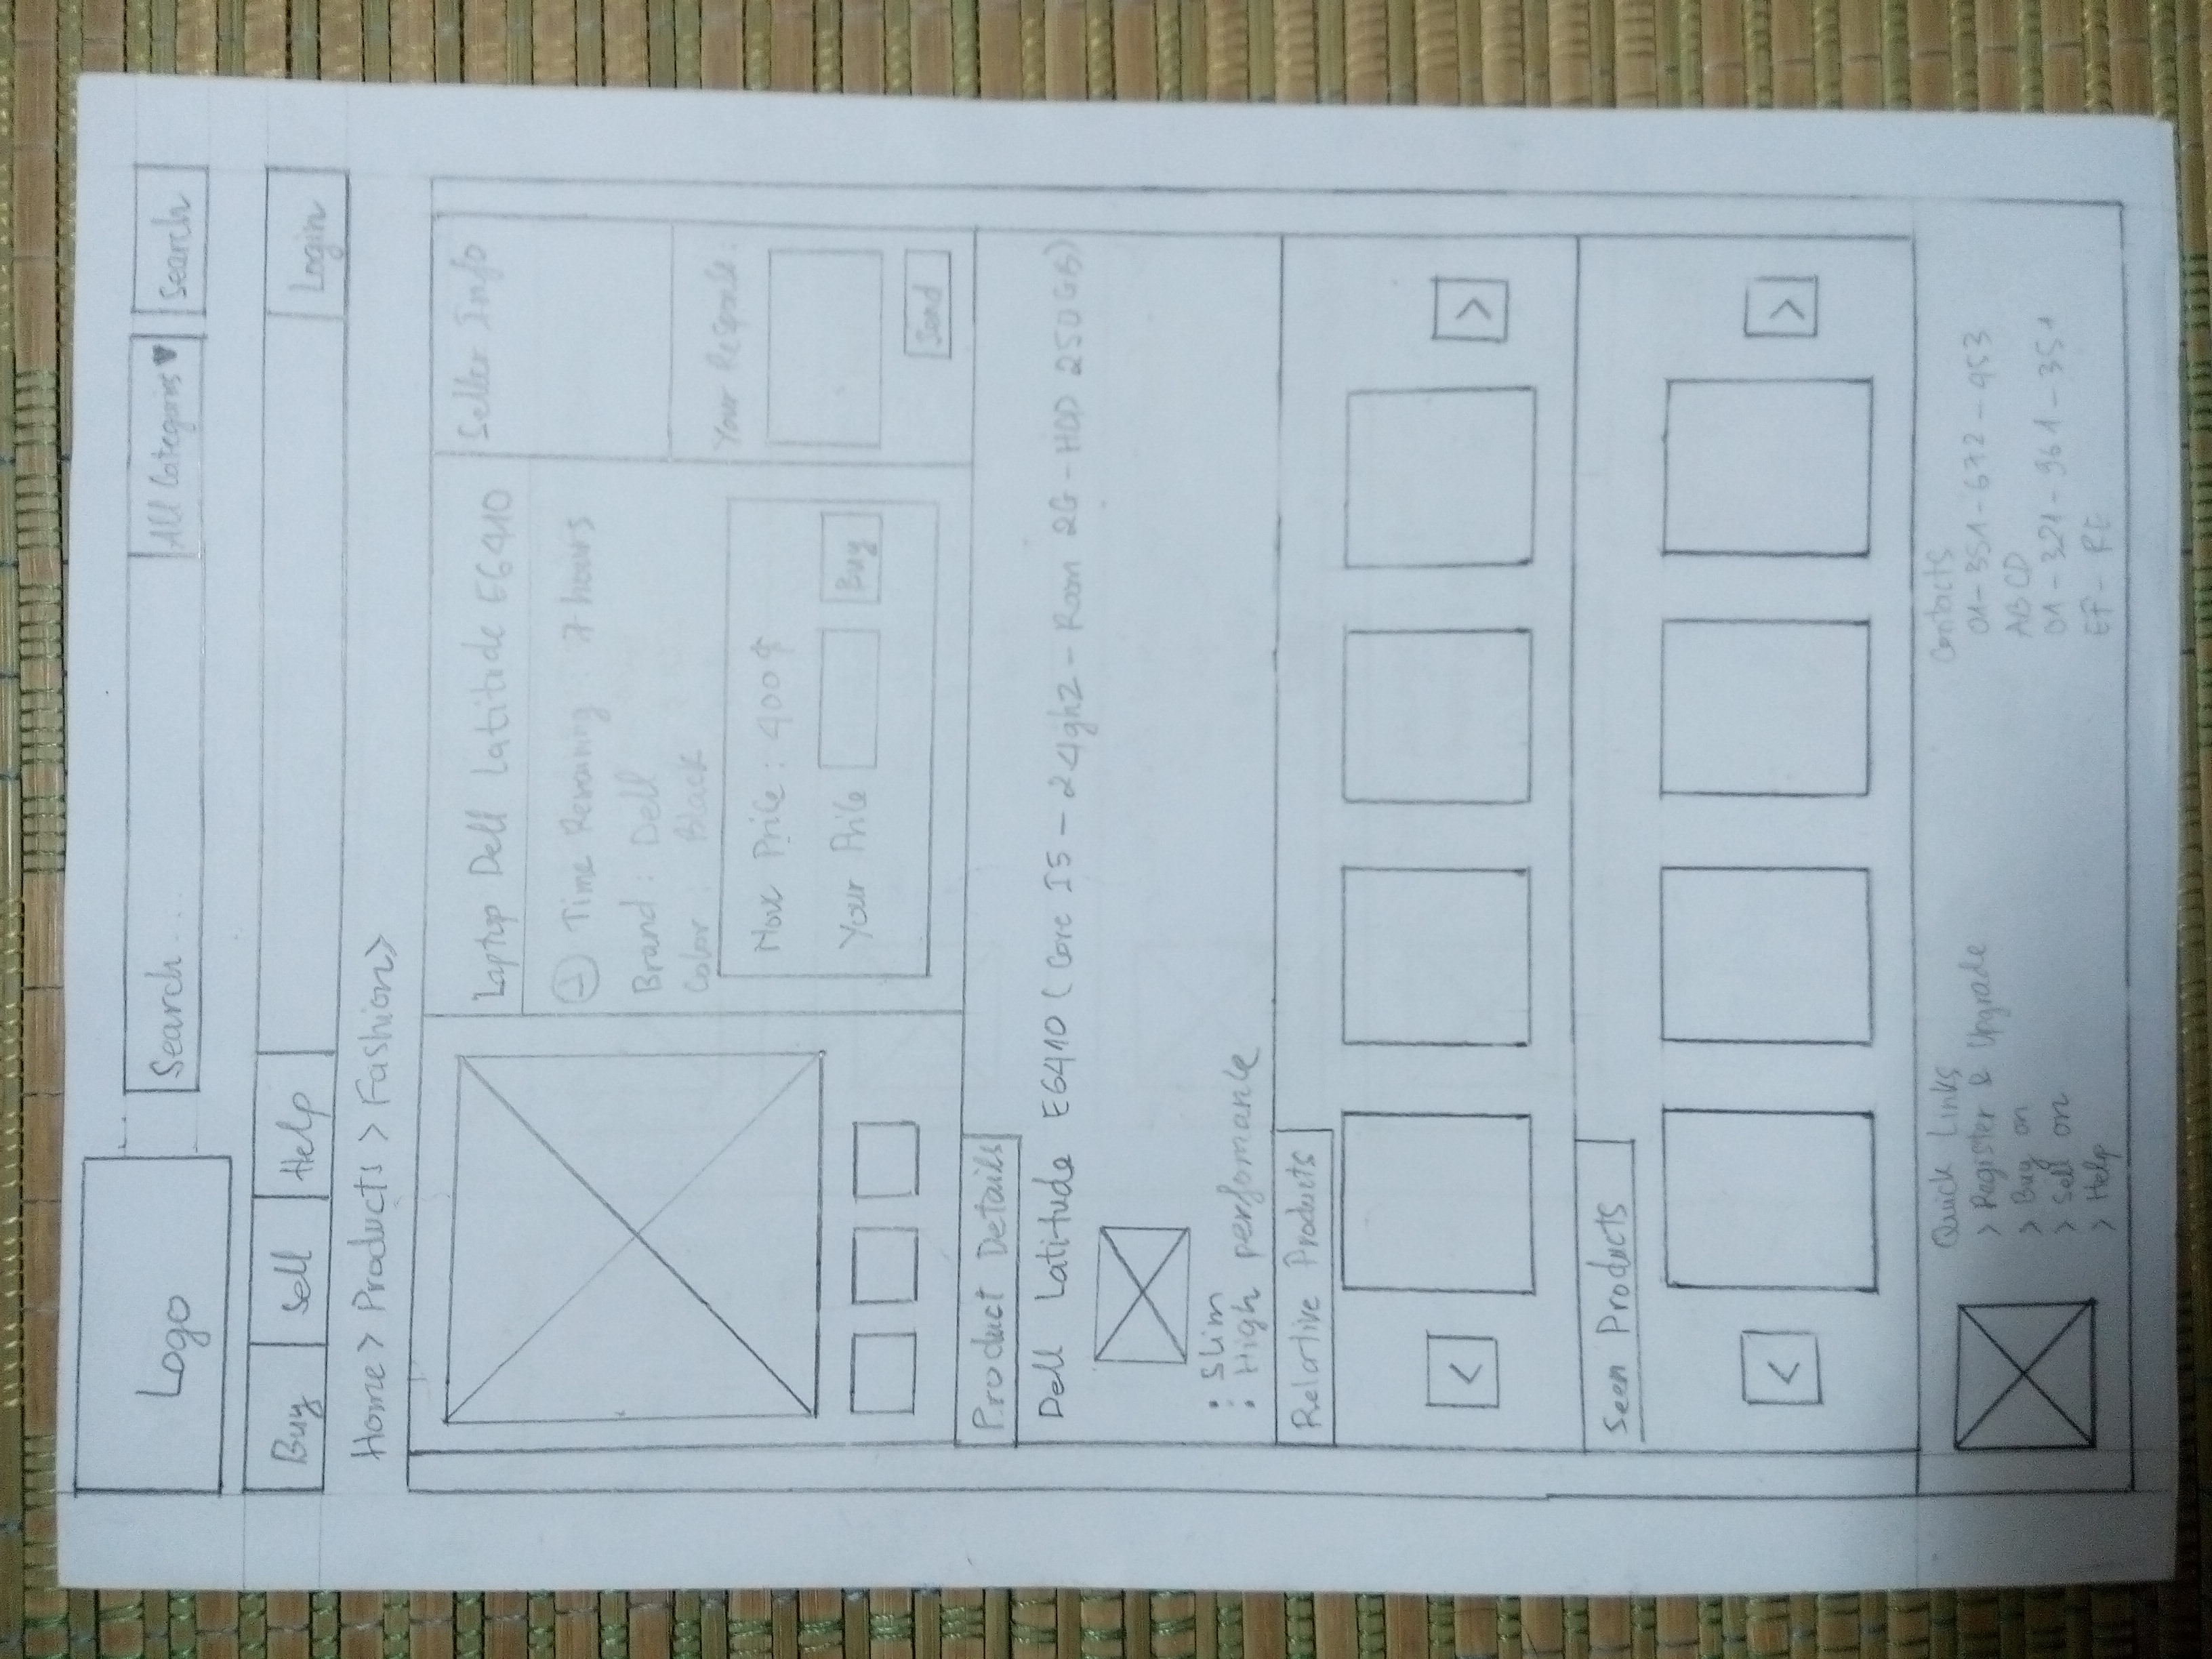 Logo
Search...
All Categories ▼
Search
Buy
Sell
Help
Login
Home > Products > Fashion >
Laptop Dell Latitude E6410
Seller Info
Time Remaining : 7 hours
Brand : Dell
Color : Black
Your Response :
Now Price : 400$
Your Price
Buy
Send
Product Details
Dell Latitude E6410 ( Core I5 - 2.4ghz - Ram 2G - HDD 250GB)
• Slim
• High perfomance
Relative Products
<
>
Seen Products
<
>
Quick Links
> Register & Upgrade
> Buy on
> Sell on
> Help
Contacts
01-351-672-953
ABCD
01-321-961-351
EF-RE